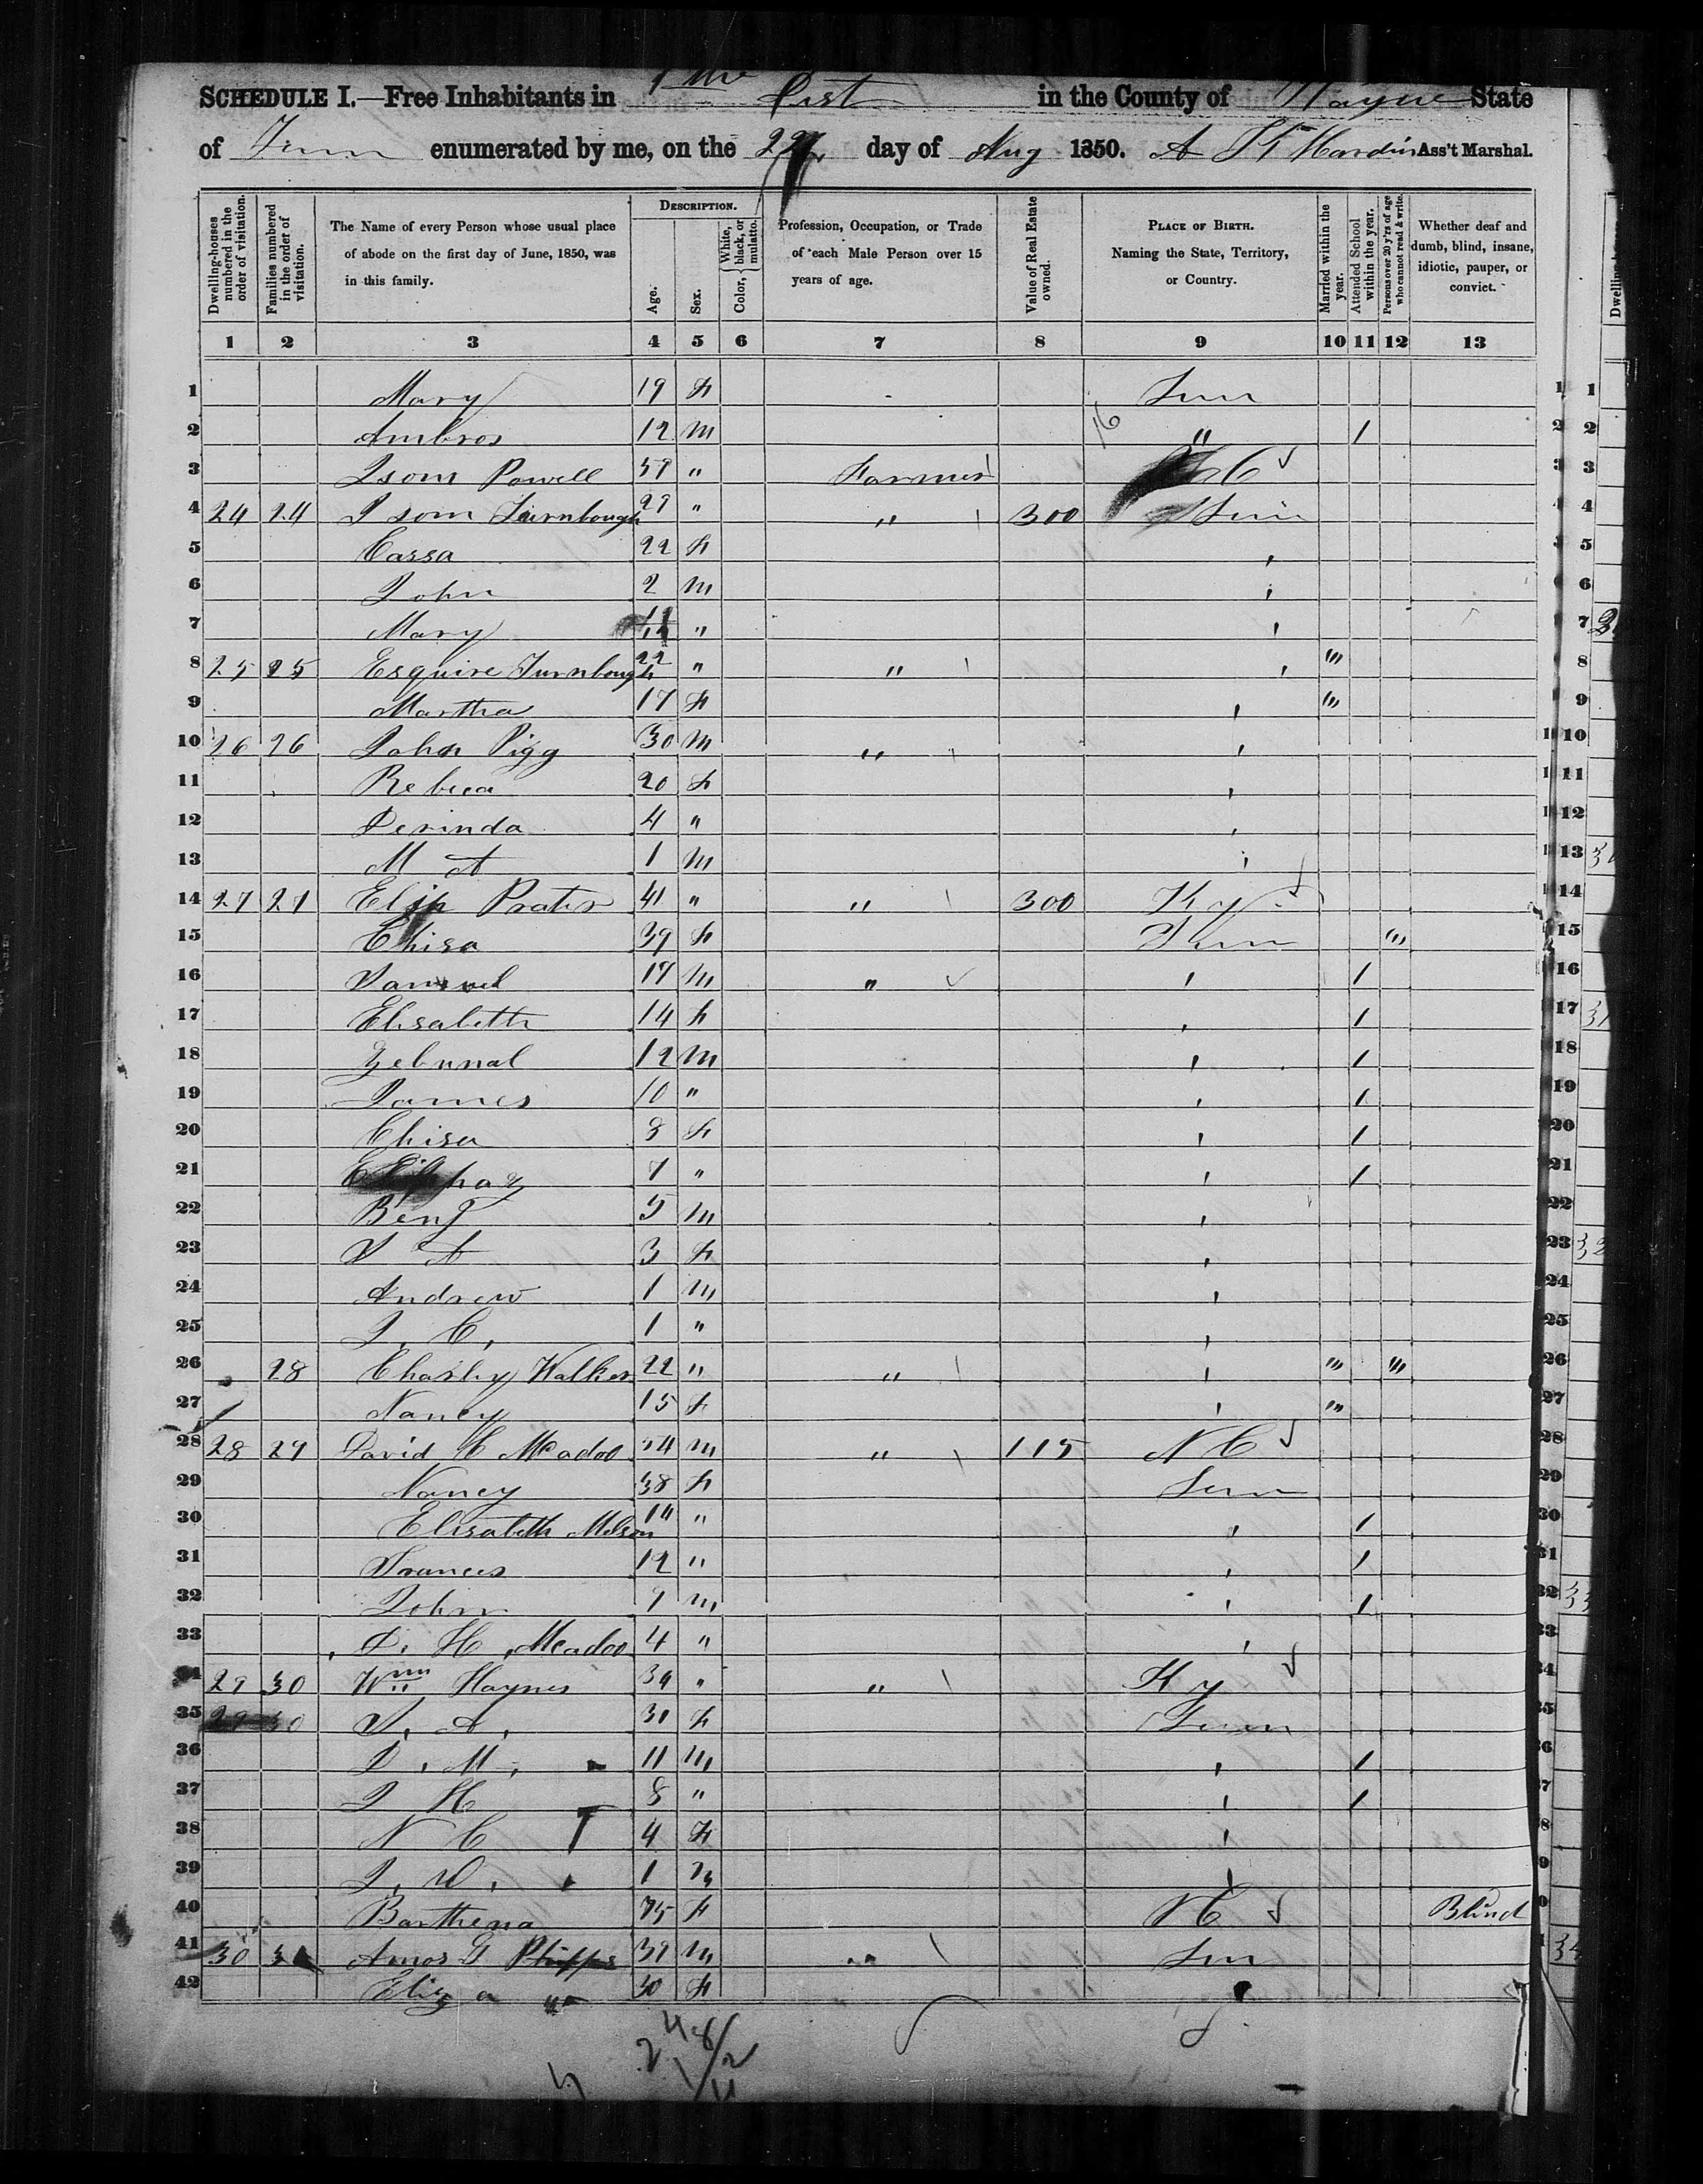 SCHEDULE I.—Free Inhabitants in Dist in the County of Wayne State
of Tenn enumerated by me, on the 22 day of Aug 1850. A Hardin Ass't Marshal.
Dwelling-houses numbered in the order of visitation. Families numbered in the order of visitation. The Name of every Person whose usual place of abode on the first day of June, 1850, was in this family. DESCRIPTION. Age. Sex. Color, { White, black, or mulatto. Profession, Occupation, or Trade of each Male Person over 15 years of age. Value of Real Estate owned. PLACE OF BIRTH. Naming the State, Territory, or Country. Married within the year. Attended School within the year. Persons over 20 y'rs of age who cannot read & write. Whether deaf and dumb, blind, insane, idiotic, pauper, or convict.
1 2 3 4 5 6 7 8 9 10 11 12 13
1 Mary 19 F Tenn 1
2 Ambros 12 M 16 " 1 2
3 Isom Powell " Farmer N C 3
4 24 24 Isom Turnbough 29 " " 300 Tenn 4
5 Cassa 22 F 5
6 John 2 M 6
7 Mary " 7
8 25 25 Esquire Turnbough 22 " " "' 8
9 Martha 17 F "' 9
10 26 26 John Pigg 30 M " 10
11 Rebeca 20 F 11
12 Derinda 4 " 12
13 M A 1 M 13
14 27 27 Prater 41 " " 300 Ky 14
15 Chisa 39 F Tenn "' 15
16 Samuel 17 M " 1 16
17 Elisabeth 14 F 1 17
18 Zebunal 12 M 1 18
19 James 10 " 1 19
20 Chisa 8 F 1 20
21 7 " 1 21
22 Benj 5 M 22
23 S A 3 F 23
24 Andrew 1 M 24
25 J. C. 1 " 25
26 28 Charley Walker 22 " " "' "' 26
27 Nancy 15 F "' 27
28 28 29 David C McAdoo 54 M " 115 N C 28
29 Nancy 38 F Tenn 29
30 Elisabeth Melson 14 " 1 30
31 Frances 12 " 1 31
32 John 9 M 1 32
33 D. H. McAdoo 4 " 33
34 29 30 Wm Haynes 34 " " Ky 34
35 29 30 S. A. 31 F Tenn 35
36 D. M. 11 M 1 36
37 J H 8 " 1 37
38 N C 4 F 38
39 J. W. 1 M 39
40 Barthena 75 F N C Blind 40
41 30 31 Amos G Phipps 39 M " Tenn 41
42 Eliza " 30 F